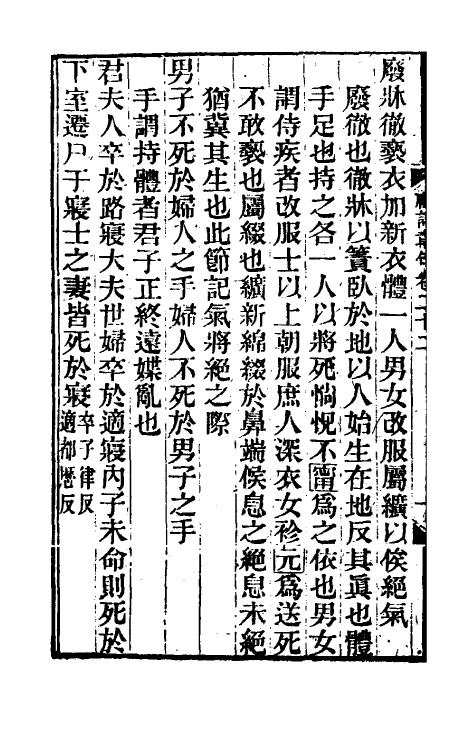 廢牀徹褻衣加新衣體一人男女改服屬纊以俟絕氣
廢徹也徹牀以簀臥於地以人始生在地反其眞也體
手足也持之各一人以將死惝怳不甯爲之依也男女
謂侍疾者改服士以上朝服庶人深衣女袗元爲送死
不敢褻也屬綴也纊新綿綴於鼻端候息之絕息未絕
猶冀其生也此節記氣將絕之際
男子不死於婦人之手婦人不死於男子之手
手謂持體者君子正終遠媟亂也
君夫人卒於路寢大夫世婦卒於適寢內子未命則死於
下室遷尸于寢士之妻皆死於寢卒子律反
適都厯反